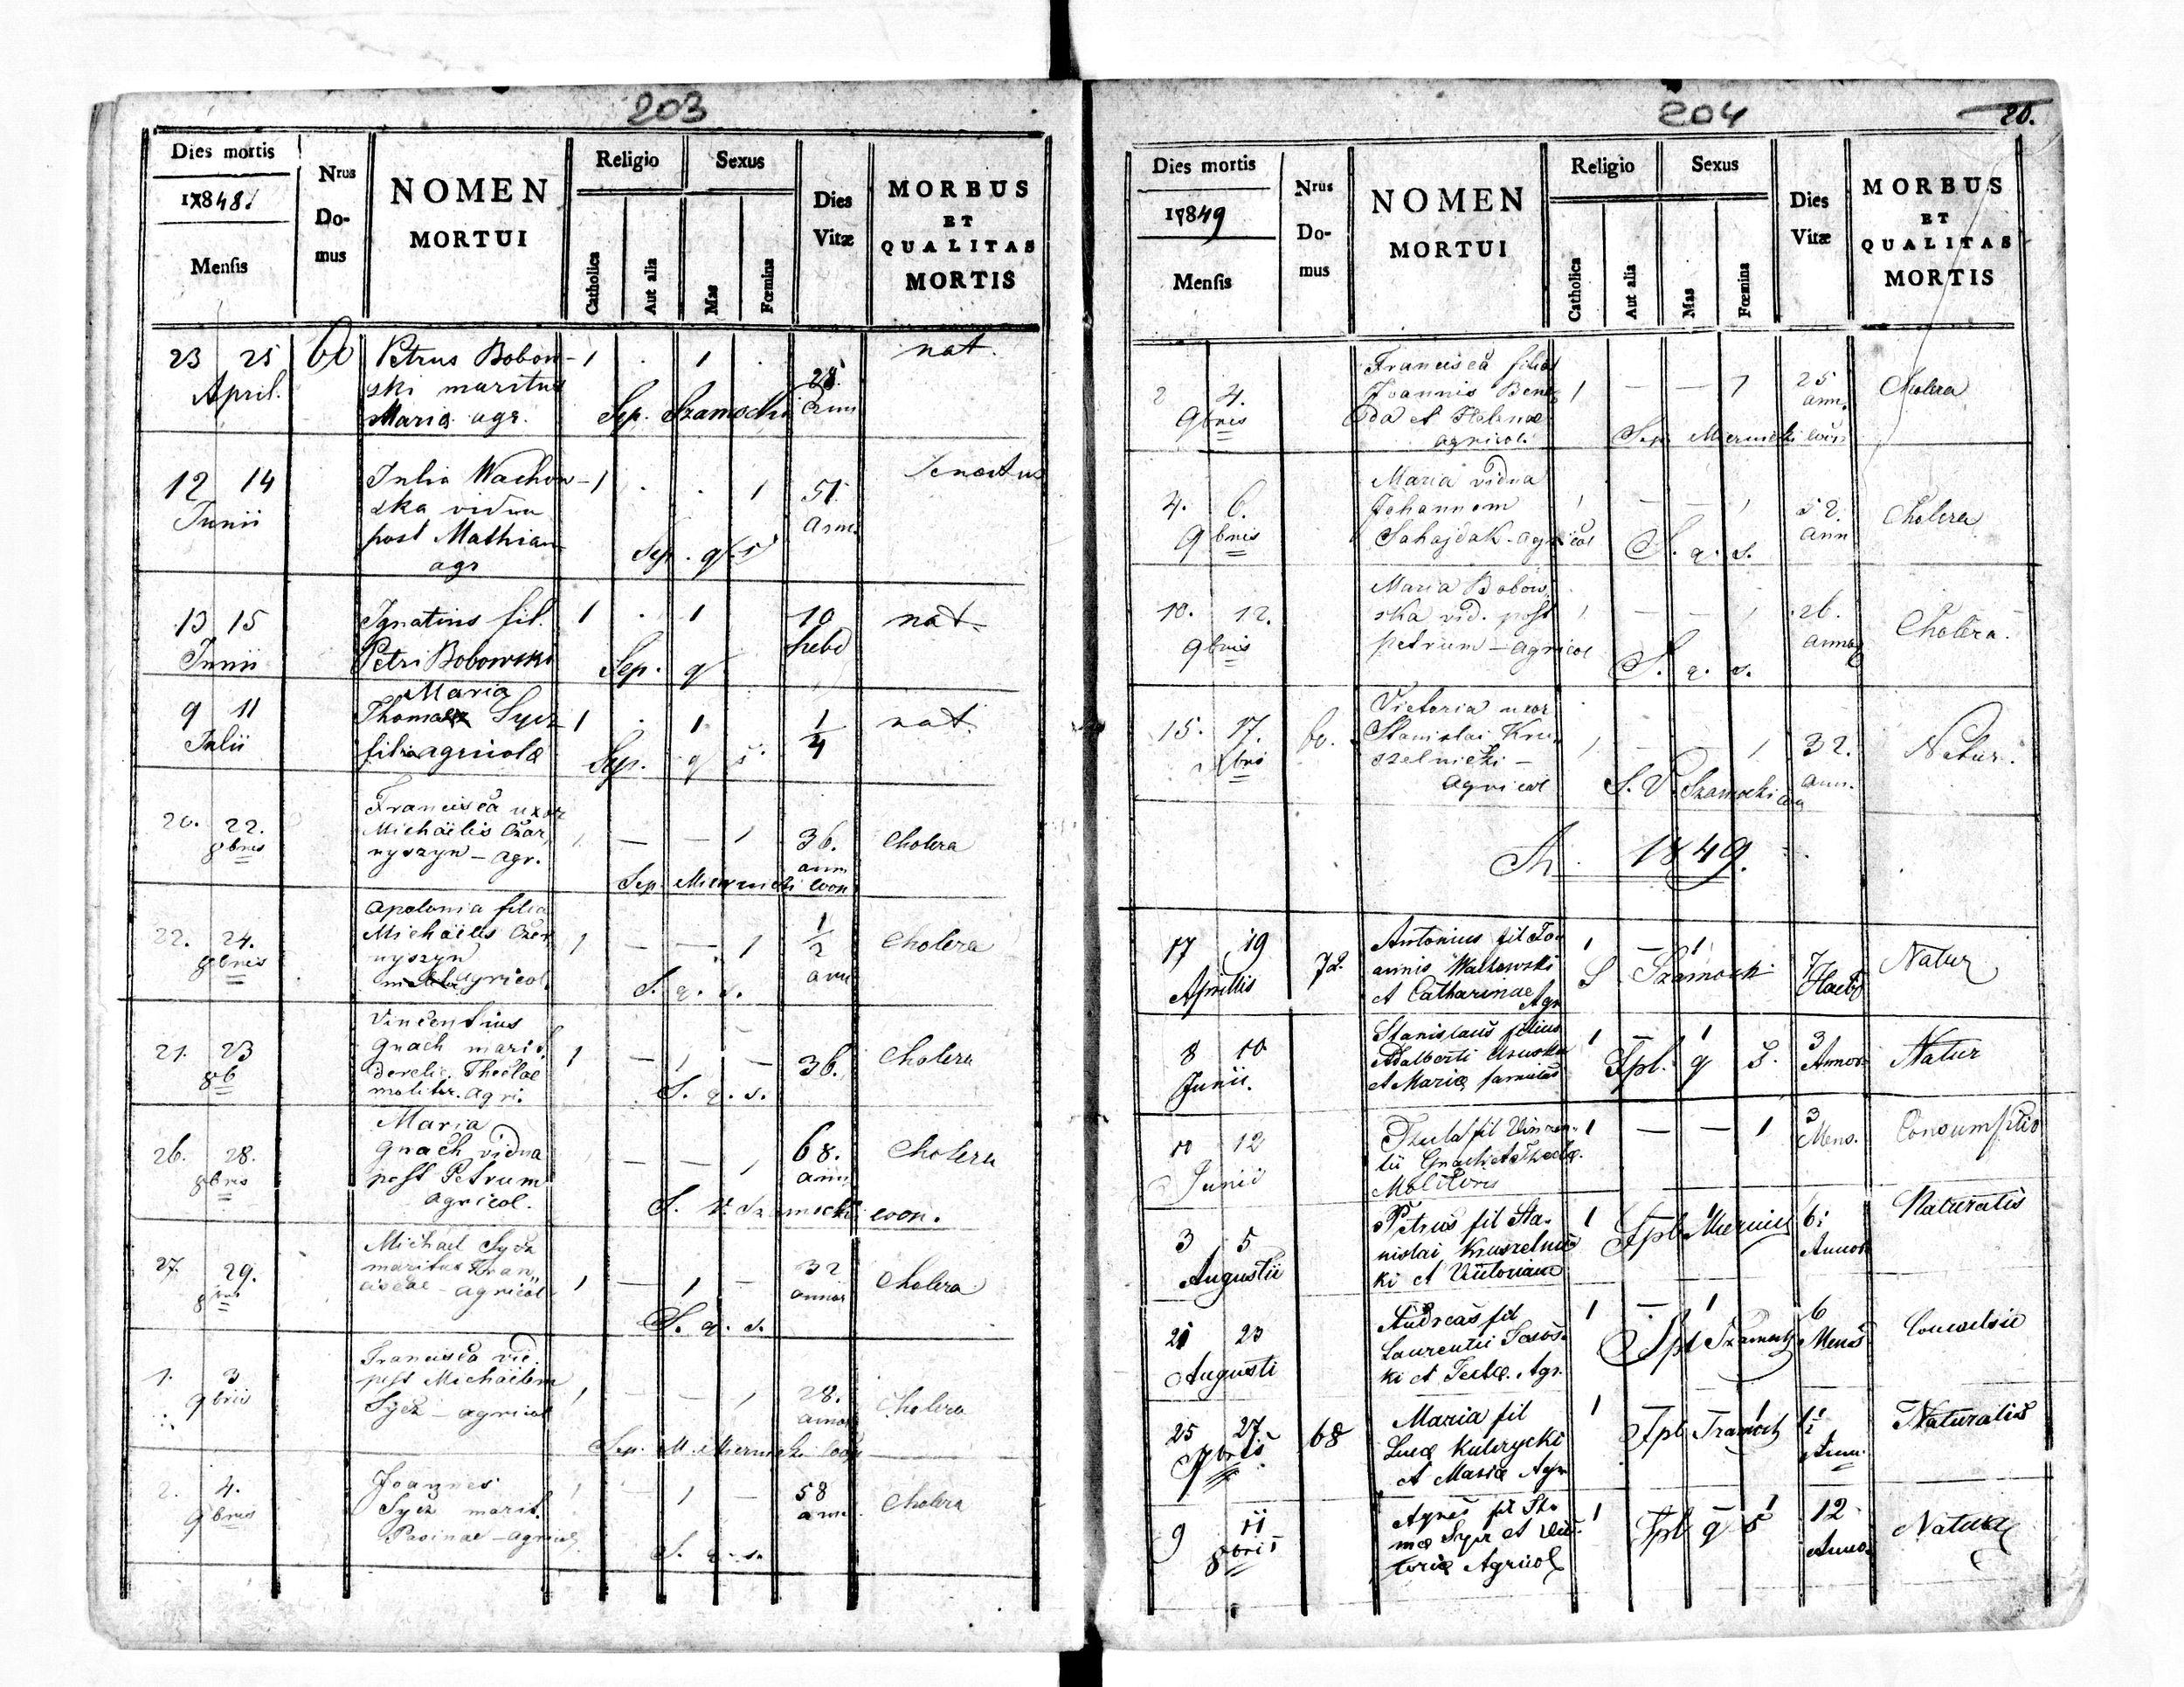 203
Dies mortis
178481
Mensis
Nrus
Do-
mus
NOMEN
MORTUI
Religio
Catholica
Aut alia
Sexus
Mas
Fœmina
Dies
Vitæ
MORBUS
ET
QUALITAS
MORTIS
23 25
April.
Petrus Bobow-
ski maritus
Maria agr.
1 . 1 .
Sep. Szamocki
28
nat.
12 14
Junii
Julia Wachow-
ska vidua
post Mathiam
agr
1 . . 1
Sep. q. s
51
ann.
13 15
Junii
Ignatius fil.
Petri Bobowski
1 . 1
Sep. q
10
hebd
nat.
9 11
Julii
Maria
Thomae Sycz
filia agricolæ
1 . 1
Sep. q s.
1/4
nat.
20. 22.
8bris
Francisca uxor
Michäelis Czar
nyszyn - agr.
— — 1
Sep. Miernicki coop
36.
ann
Cholera
22. 24.
8bris
Apolonia filia
Michäelis Czer
nyszyn
agricol.
1 — — 1
S. q. s.
1/2
ann
Cholera
21. 23
8b
Vincentius
Gnach marit.
derelic. Theclae
molitor. agri.
1 — 1 —
S. q. s.
36.
Cholera
26. 28.
8bris
Maria
Gnach vidua
post Petrum
agricol.
— — 1
S. V. Szamocki coop.
68.
ann
Cholera
27 29.
8bris
Michael Sycz
maritus Fran
ciscae - agricol
1 — 1 —
S. q. s.
32
annor
Cholera
1. 3
9bris
Francisca vid.
post Michäelem
Sycz - agricol
1 — — 1
Sep. M. Miernicki coop
28.
annor
Cholera
2. 4.
9bris
Joannes
Sycz marit.
agricol
1 — 1 —
S. q. s.
58
ann.
Cholera
204
20.
Dies mortis
17849
Mensis
Nrus
Do-
mus
NOMEN
MORTUI
Religio
Catholica
Aut alia
Sexus
Mas
Fœmina
Dies
Vitæ
MORBUS
ET
QUALITAS
MORTIS
2 4.
9bris
Francisca filia
Joannis Bene
da et Helenae
agricol.
1 — — 1
Sep. Miernicki coop
25
ann.
Cholera
4. 6.
9bris
Maria vidua
Johannem
Sahajdak - agricol
1 — — 1
S. q. s.
52.
ann
Cholera
10. 12.
9bris
Maria Bobow
ska vid. post
petrum - agricol
1 — — 1
S. q. s.
26.
annor
Cholera.
15. 17.
60.
Victoria uxor
Stanislai Kru
szelnicki -
agricol
1 — — 1
S. V. Szamocki coop
32.
ann.
Natur.
1849.
17 19
Aprillis
72.
Antonius fil Jo
annis Wachowski
et Catharinae Agr
1 — 1
S Szamocki
7
Haebd
Natur
8 10
Junii.
Stanislaus filius
Adalberti
et Mariæ famulas
1 — 1
Spl. q s.
3
Annor
Natur
10 12
Junii
Thecla fil Vincen-
tii Gnach et Theclæ
Molitoris
1 — — 1
3
Mens.
Consumptio
3 5
Augustii
Petrus fil Sta-
nislai Kruszelnic
ki et Victoriam
1 1
Spl. Miernicki
Annor
Naturalis
21 23
Augusti
Andreas fil
Laurentii
ki et Teclæ. Agr.
1 — 1
Spl Szamocki
6
Mens
25 27.
7bris
68
Maria fil
Lucæ Kulczycki
et Mariæ Agr
1 1
Spl Szamock
Naturalis
9 11
8bris
Agnes fil
Sycz et Vic
toriæ Agricol
1 1
Spl q s
12
Annor
Natur